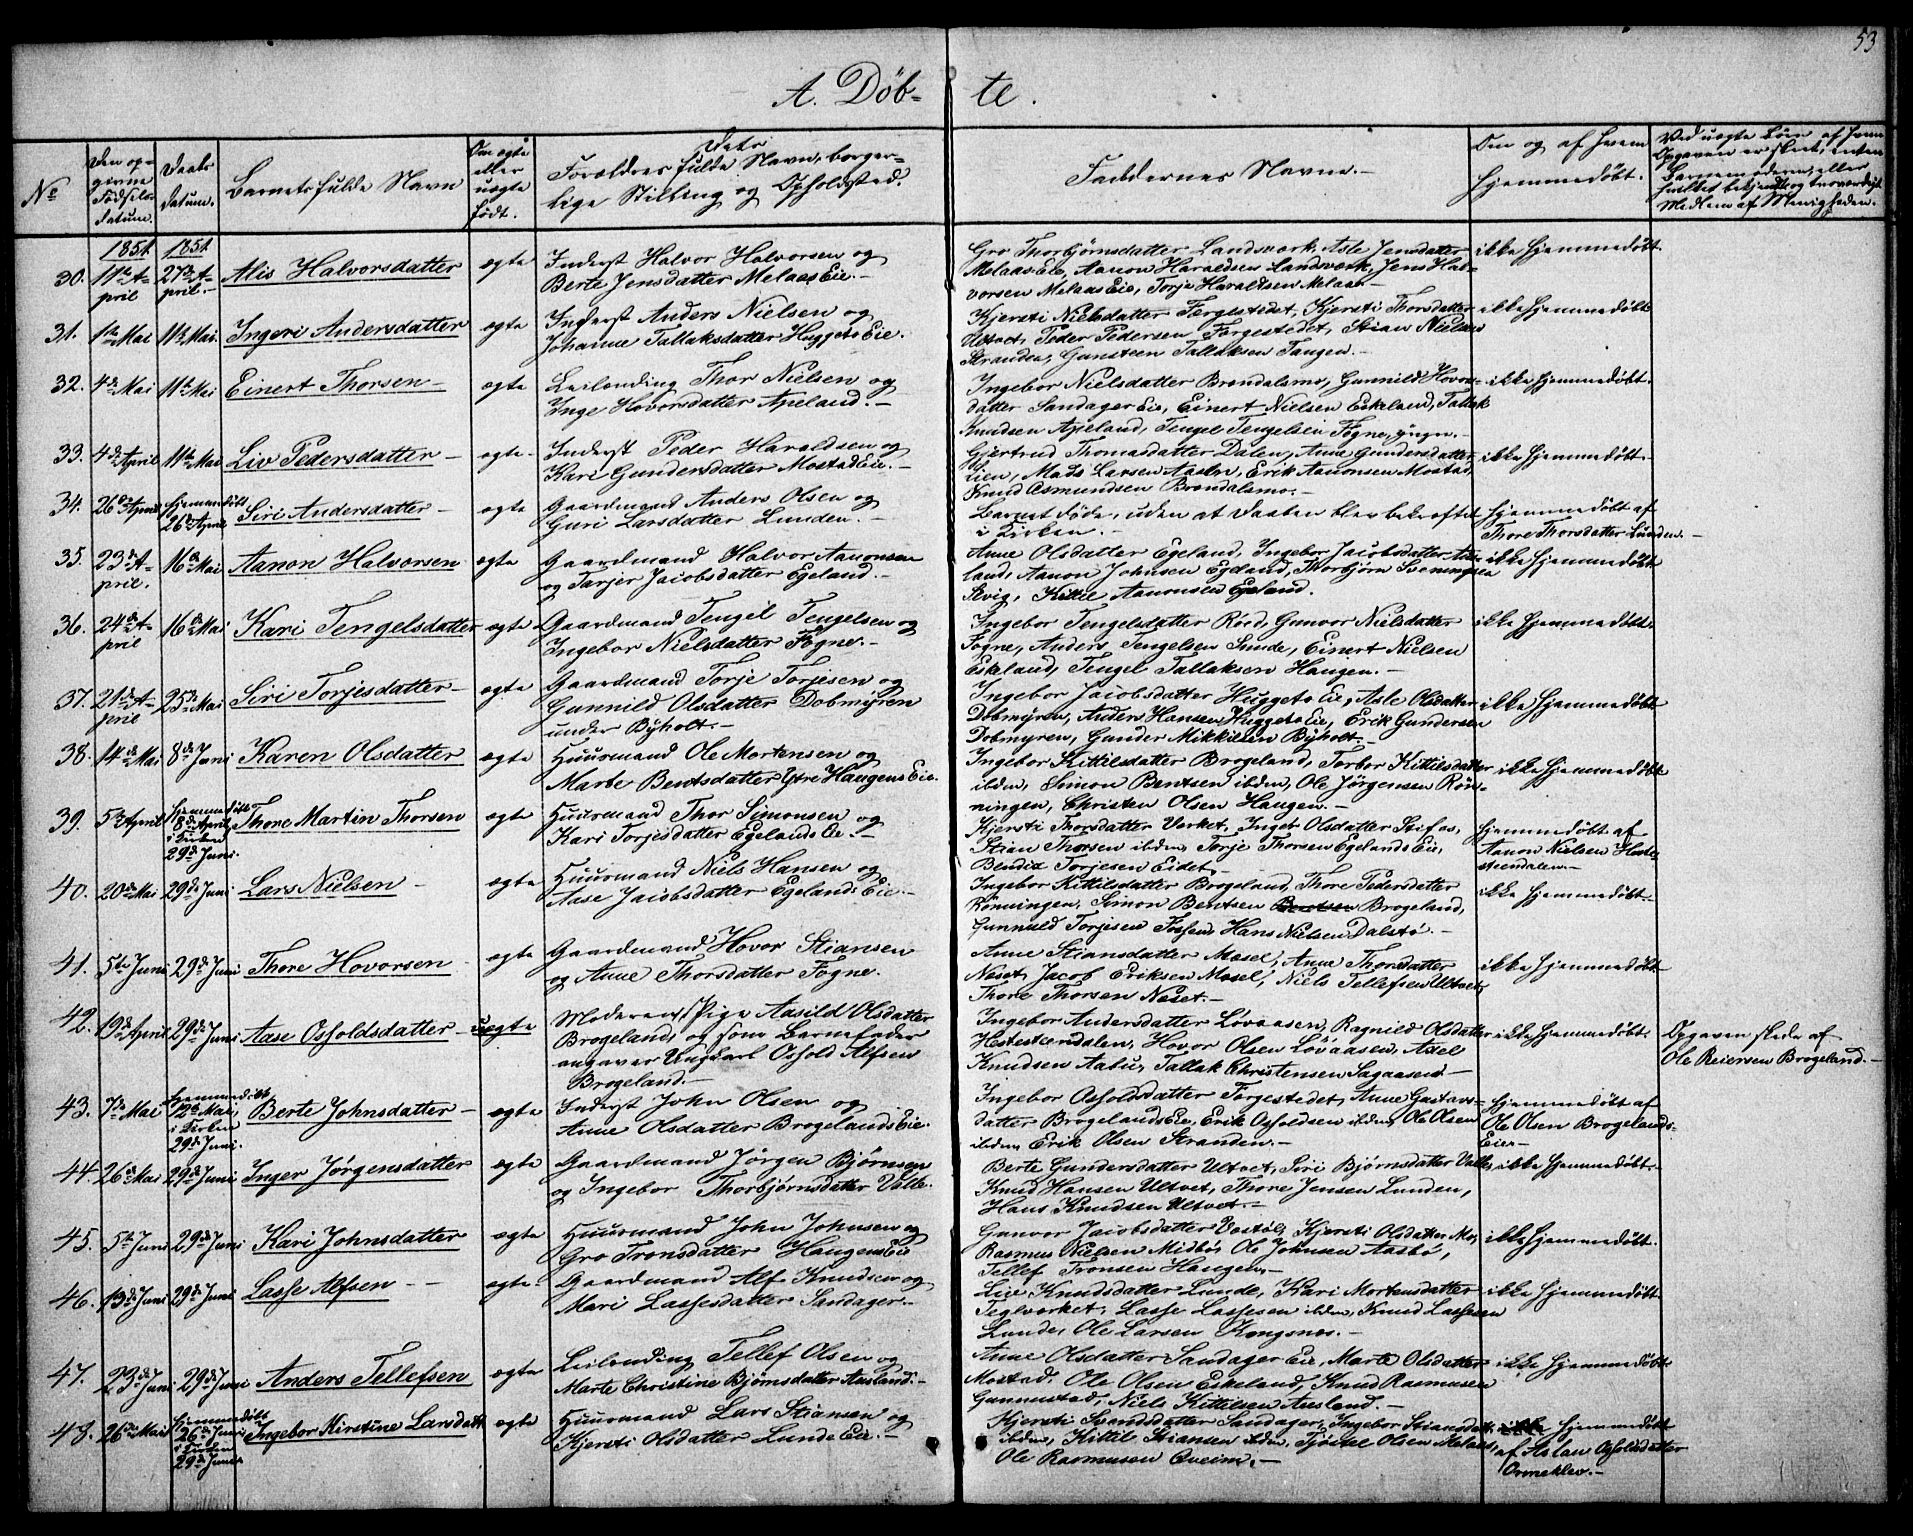 53
A. Døb- te.
No
Den op-
givne
Fødsels-
datum.
Daabs
datum.
Barnets fulde Navn
Om ægte
eller
uægte
født.
Dets
Forældres fulde Navn, borger-
lige Stilling og Opholdssted.
Faddernes Navne.-
Om og af hvem
hjemmedøbt.
Ved uægte Børn af hvem
Opgaven er skeet, enten
Barnemoderen, eller
hvilket bekjendt og troværdigt
Medlem af Menigheden.
1851. 1851.
30. 11te A-
pril 27de A-
pril.- Alis Halvorsdatter ægte Inderst Halvor Halvorsen og
Berte Jensdatter Melaas Eie.-
Gro Thorbjørnsdatter Landsværk, Asle Jensdatter
Melaas Eie, Aanon Haraldsen Landsværk, Jens Hal-
vorsen Melaas Eie, Torje Haraldsen Melaas.-
ikke hjemmedøbt.
31. 1ste Mai 11te Mai. Ingeri Andersdatter ægte Inderst Anders Nielsen og
Johanne Tallaksdatter Huggeto Eie.
Kjersti Nielsdatter Forgestedet, Kjersti Thorsdatter
Ultvet, Peder Pedersen Forgestedet, Stian Nielsen
Stranden, Gunsteen Tallaksen Tangen.-
ikke hjemmedøbt
32. 4de Mai 11te Mai Einert Thorsen- ægte Leilending Thor Nielsen og
Inge Hovorsdatter Apeland.-
Ingebor Nielsdatter Brøndalsmo, Gunnild Hovors-
datter Sandager Eie, Einert Nielsen Eskeland, Tallak
Knudsen Apeland, Tengel Tengelsen Fogne, yngre.-
ikke hjemmedøbt.
33. 4de April 11te Mai Liv Pedersdatter- ægte- Inderst Peder Haraldsen og
Kari Gundersdatter Mostad Eie.-
Gjertrud Thomasdatter Dalen, Anne Gundersdatter
Lien, Mads Larsen Aasen, Erik Aanonsen Mostad,
Knud Asmundsen Brøndalsmo.-
ikke hjemmedøbt.-
34. 26de April hjemmedøbt
26de April Siri Andersdatter- ægte Gaardmand Anders Olsen og
Guri Larsdatter Lunden.-
Barnet døde, uden at Daaben blev bekræftet
i Kirken.-
hjemmedøbt af
Thore Thorsdatter Lunden.-
35. 23de A-
pril. 16de Mai Aanon Halvorsen ægte Gaardmand Halvor Aanonsen
og Tarjer Jacobsdatter Egeland.-
Anne Olsdatter Egeland, Ingebor Jacobsdatter Aas-
land, Aanon Johnsen Egeland, Thorbjørn Sveningsen
Røvig, Kittil Aanonsen Egeland.
ikke hjemmedøbt
36. 24de A-
pril 16de Mai Kari Tengelsdatter ægte Gaardmand Tengel Tengelsen og
Ingebor Nielsdatter Fogne.-
Ingebor Tengelsdatter Rød, Gunvor Nielsdatter
Fogne, Anders Tengelsen Sunde, Einert Nielsen
Eskeland, Tengel Tallaksen Haugen.-
ikke hjemmedøbt.
37. 21de A-
pril 25de Mai Siri Torjesdatter- ægte Gaardmand Torje Torjesen og
Gunnild Olsdatter Dobmyren
under Byholt.-
Ingebor Jacobsdatter Huggeto Eie, Asle Olsdatter
Dobmyren, Anders Hansen Huggeto Eie, Erik Gundersen
Dobmyren, Gunder Mikkelsen Byholt.-
ikke hjemmedøbt
38. 14de Mai 8de Juni Karen Olsdatter ægte Huusmand Ole Mortensen og
Marte Bentsdatter Ytre Haugens Eie.
Ingebor Kittilsdatter Brogeland, Torbor Kittilsdatter
ibdem, Simon Bentsen ibdem, Ole Jørgensen Røn-
ningen, Christen Olsen Haugen.-
ikke hjemmedøbt
39. 5te April Hjemmedøbt
8de April,
i Kirken
29de Juni. Thore Martin Thorsen ægte Huusmand Thor Simonsen og
Kari Torjesdatter Egelands Eie.-
Kjersti Thorsdatter Værket, Ingeb. Olsdatter Stifos,
Stian Thorsen ibdem, Torje Thorsen Egelands Eie,
Bendix Torjesen Eidet.-
hjemmedøbt af
Aanon Nielsen Heste-
steendalen.-
40. 20de Mai 29de Juni Lars Nielsen - ægte Huusmand Niels Hansen og
Aase Jacobsdatter Egelands Eie.-
Ingebor Kittilsdatter Brogeland, Thore Pedersdatter
Rønningen, Simon Bentsen Brogeland,
Gunnuld Torjesen Fossen, Hans Nielsen Dalstø.-
ikke hjemmedøbt.-
41. 5te Juni 29de Juni Thore Hovorsen ægte Gaardmand Hovor Stiansen
og Anne Thorsdatter Fogne.
Anne Stiansdatter Mosel, Anne Thorsdatter
Næset, Jacob Eriksen Mosel, Niels Tellefsen Ultvet,
Thore Thorsen Næset.-
ikke hjemmedøbt-
42. 19de April 29de Juni Aase Osfoldsdatter- uægte Moderen, Pige Aasild Olsdatter
Brogeland, og som Barnefader
angaver Ungkarl Osfold Alfsen
Brogeland.-
Ingebor Andersdatter Løvaasen, Ragnild Olsdatter
Hestesteendalen, Hovor Olsen Løvaasen, Axel
Knudsen Aabu, Tallak Christensen Sagaasen-
ikke hjemmedøbt.
Opgaven skede af
Ole Reiersen Brogeland.-
43. 7de Mai hjemmedøbt
12te Mai,
i Kirken
29de Juni. Berte Johnsdatter- ægte Inderst John Olsen og
Anne Olsdatter Brogelands Eie.
Ingebor Osfoldsdatter Forgestedet, Anne Gustavs-
datter Brogelands Eie, Erik Osfoldsen ibdem, Ole Olsen
ibdem, Erik Olsen Stranden.-
hjemmedøbt af
Ole Olsen Brogelands-
Eie-
44. 26de Mai 29de Juni Inger Jørgensdatter ægte Gaardmand Jørgen Bjørnsen
og Ingebor Thorbjørnsdatter Valle.
Berte Gundersdatter Ultvet, Siri Bjørnsdatter Valle,
Knud Hansen Ultvet, Thore Jensen Lunden,
Hans Knudsen Ultvet.-
ikke hjemmedøbt.-
45. 5te Juni 29de Juni Kari Johnsdatter ægte Huusmand John Johnsen og
Gro Tronsdatter Haugens Eie
Gunvor Jacobsdatter Vestøl, Kjersti Olsdatter Mo,
Rasmus Nielsen Midbø, Ole Johnsen Aasbø,
Tellef Tronsen Haugen.-
ikke hjemmedøbt.
46. 13de Juni 29de Juni Lasse Alfsen - - ægte- Gaardmand Alf Knudsen og
Mari Lassesdatter Sandager.-
Liv Knudsdatter Lunde, Kari Mortensdatter
Teglværket, Lasse Lassesen ibdem, Knud Lassesen
Lunde, Ole Larsen Kongsnes.-
ikke hjemmedøbt
47. 23de Juni 29de Juni Anders Tellefsen ægte Leilending Tellef Olsen og
Marte Christine Bjørnsdatter Ausland.-
Anne Olsdatter Sandager Eie, Marte Olsdatter
Mostad, Ole Olsen Eskeland, Knud Rasmusen
Gunnestad, Niels Kittilsen Ausland.-
ikke hjemmedøbt
48. 26de Mai Hjemmedøbt
26de Juni
i Kirken
29de Juni Ingebor Kirstine Larsdatt. ægte Huusmand Lars Stiansen og
Kjersti Olsdatter Lunde Eie.-
Kjersti Svendsdatter Sandager, Ingebor Stiansdatt.
ibdem, Kittil Stiansen ibdem, Tjøstel Olsen Melaas,
Ole Rasmusen Qveim.-
ikke hjemmedøbt
af Aslau Osfoldsdatter
Ormeklev.-